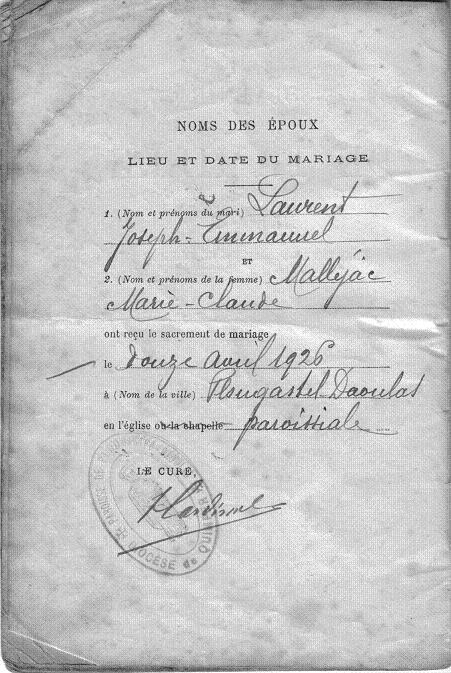 NOMS DES ÉPOUX
LIEU ET DATE DU MARIAGE
1. (Nom et prénoms du mari) Laurent
Joseph-Emmanuel
ET
2. (Nom et prénoms de la femme) Malléjac
Marie-Claude
ont reçu le sacrement de mariage
le douze avril 1926
à (Nom de la ville) Plougastel Daoulas
en l'église ou la chapelle paroissiale
LE CURÉ,
DIOCÈSE de QUIMPER